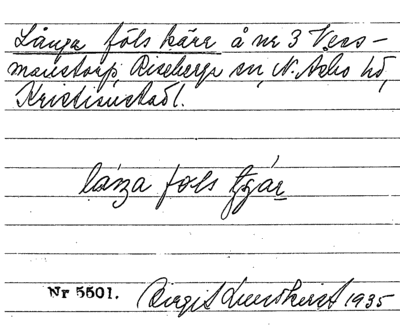 Långa föls kärr å nr 3 Vers-
manstorp, Riseberga sn, N. Åsbo hd,
Kristianstads l.
fols
Nr 5501. Birgit Lundkvist 1935